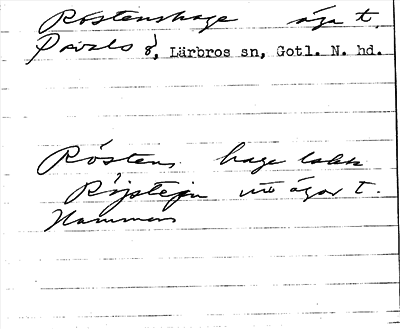 Röstenshage äga t.
Pävals g, Lärbros sn, Gotl. N. hd.
Röstens hage
Röjstejn ägor t.
Hammars